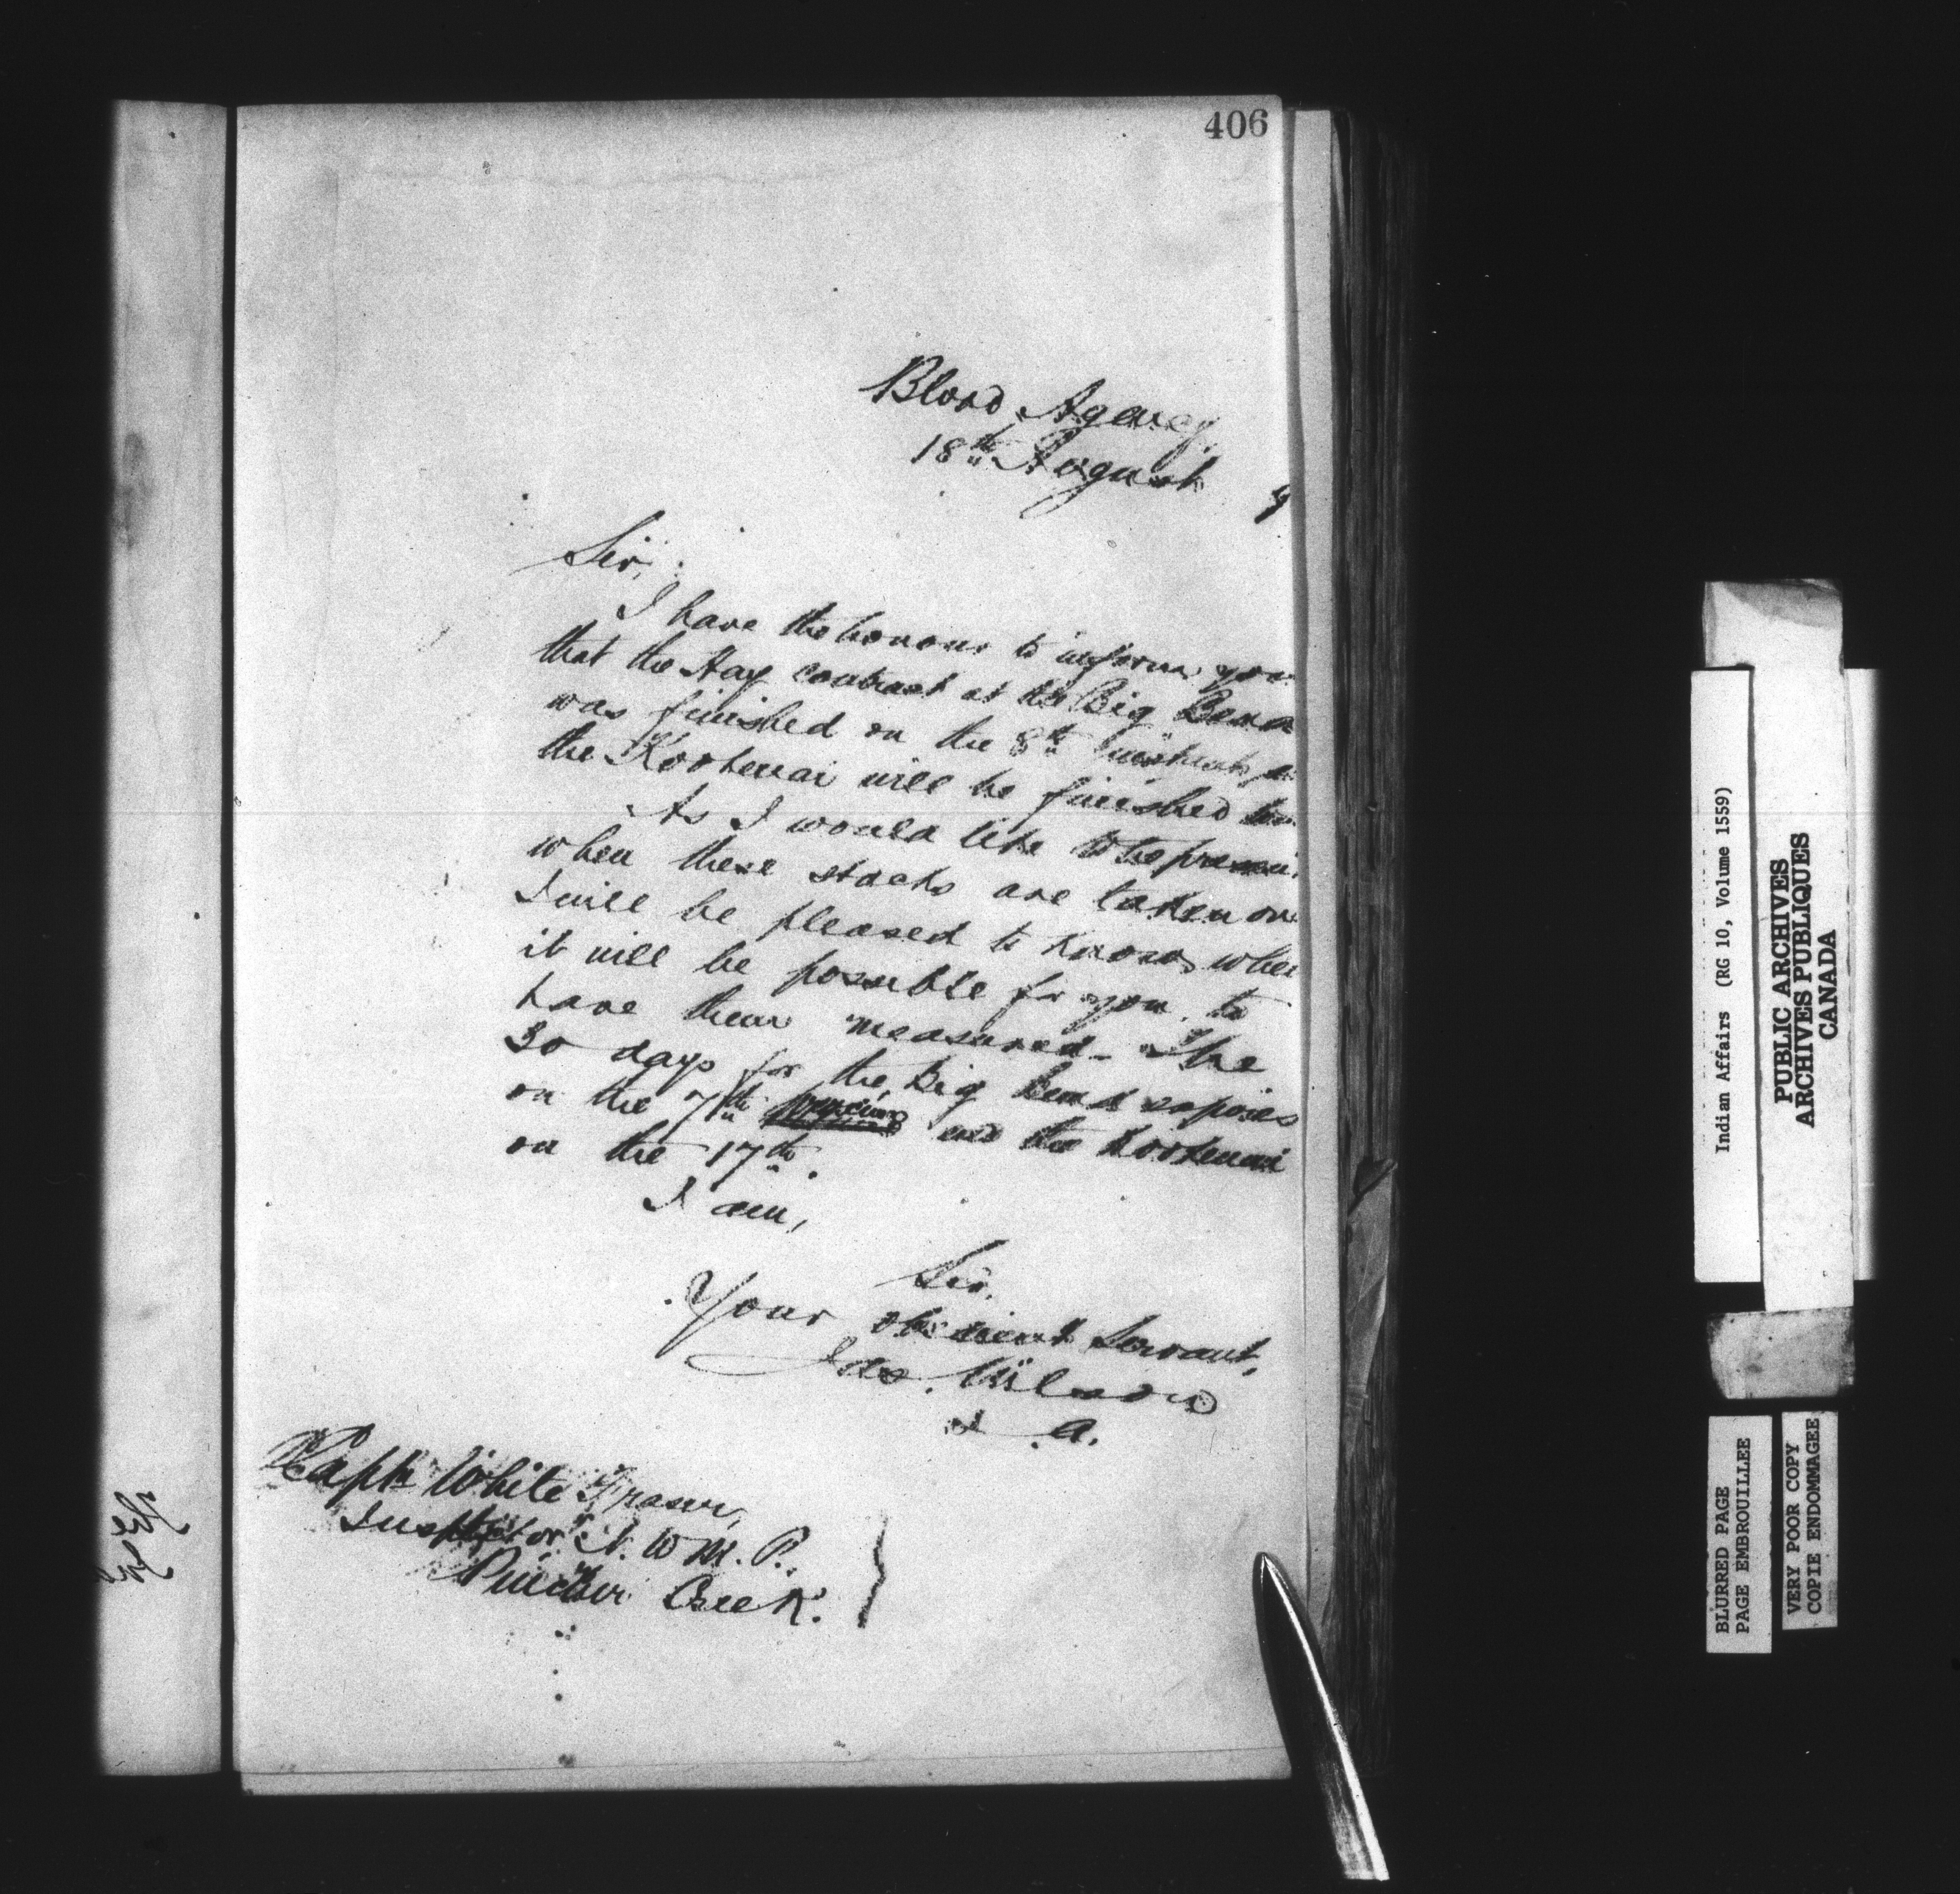 406
Blood Agency,
18th August 9
Sir,
I have the honour to inform you
that the Hay contract at the Big Bend
was finished on the 8th instant,
the Kootenai will be finished
As I would like to be present
when these stacks are taken over
I will be pleased to know when
it will be possible for you to
have them measured. The
30 days for the Big Bend expires
on the 7th and the Kootenai
on the 17th.
I am,
Sir,
Your obedient Servant,
Jas. Wilson
I. A.
Captn White Fraser,
Inspector N. W. M. P.
Pincher Creek.
Indian Affairs (RG 10, Volume 1559)
PUBLIC ARCHIVES
ARCHIVES PUBLIQUES
CANADA
BLURRED PAGE
PAGE EMBROUILLEE
VERY POOR COPY
COPIE ENDOMMAGEE